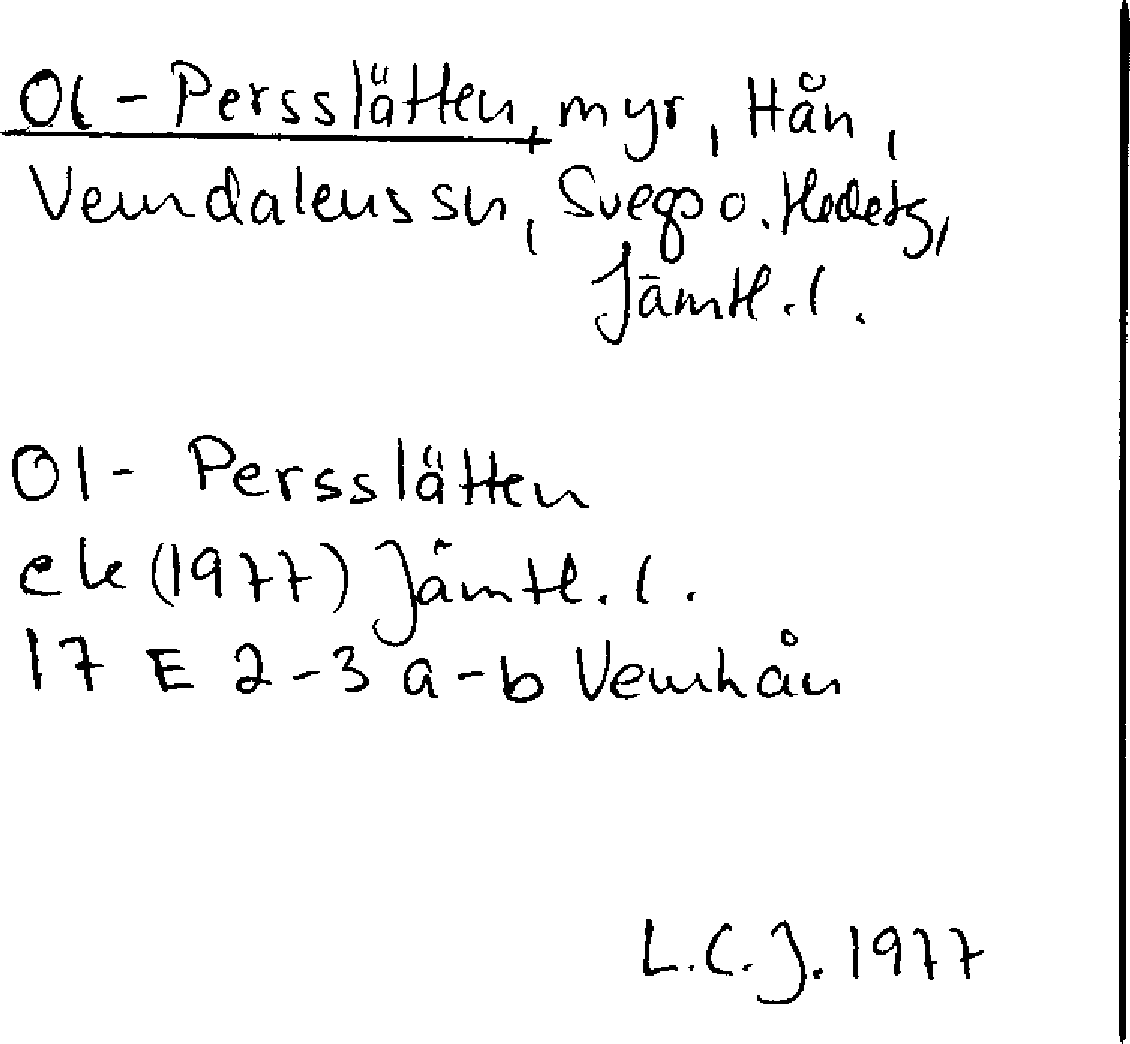 Ol-Persslätten, myr, Hån,
Vemdalens sn, Svegs o. Hedetg,
Jämtl. l.
Ol- Persslätten
ek (1977) Jämtl. l.
17 E 2-3 a-b Vemhån
L.C.J. 1977